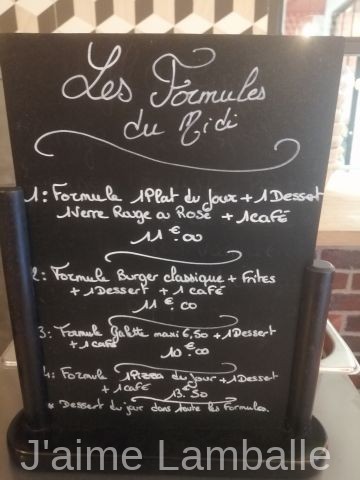 Les Formules
du Midi
1: Formule 1Plat du Jour + 1Dessert
1Verre Rouge ou Rosé + 1café
11€.00
2: Formule Burger classique + Frites
+ 1Dessert + 1 café
11€.00
3: Formule Galette maxi 6,50 + 1Dessert
+ 1 café
10€.00
4: Formule 1Pizza du Jour + 1Dessert
+ 1 café
13€.50
* Dessert du jour dans toute les Formules.
J'aime Lamballe